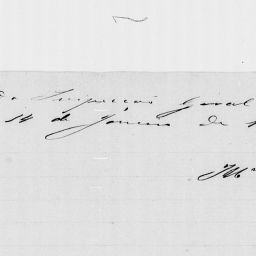 da Inspecção Geral
14 de Janeiro de 1
Illm